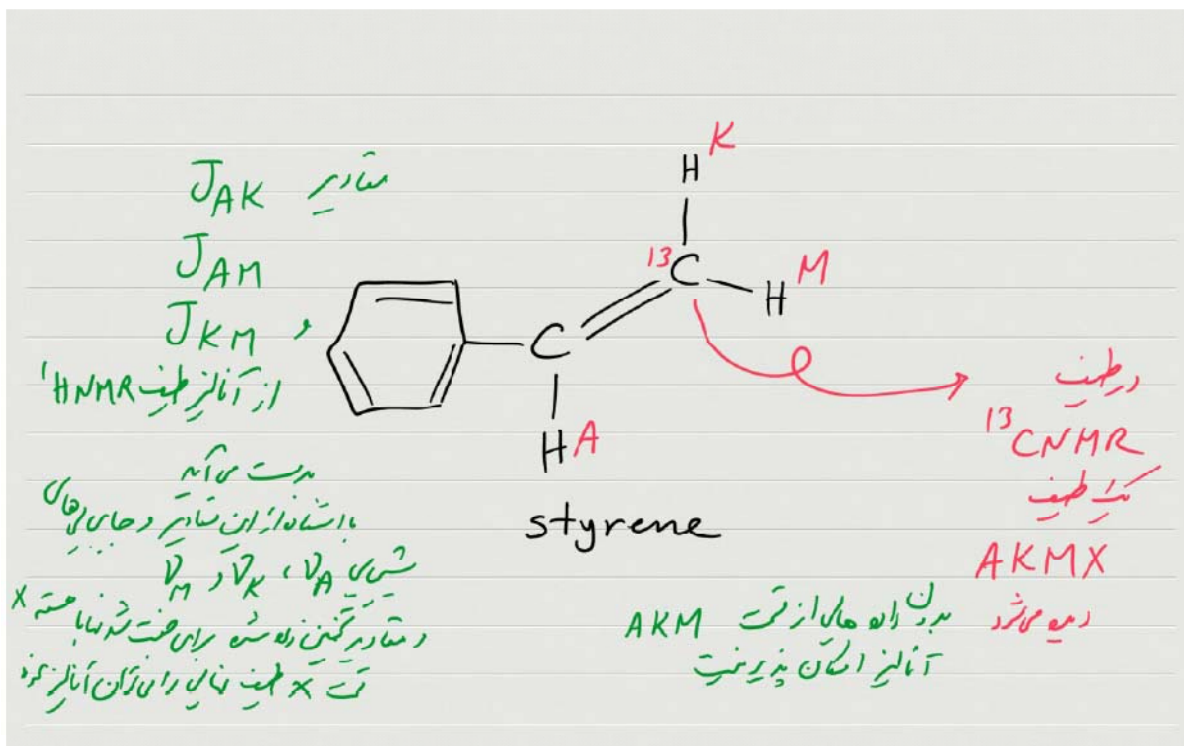 مقادیر J_AK
J_AM
و J_KM
از آنالیز طیف ¹HNMR
بدست می‌آید
با استفاده از این مقادیر و جابجایی‌های
شیمیایی ν_A ، ν_K و ν_M
و مقادیر تخمین زده شده برای جفت شدنها با هسته X
قسمت X طیف نهایی را می‌توان آنالیز نمود
H K
¹³C
H M
C
H A
styrene
در طیف
¹³CNMR
یک طیف
AKMX
دیده می‌شود
بدون داده هایی از قسمت AKM
آنالیز امکان پذیر نیست